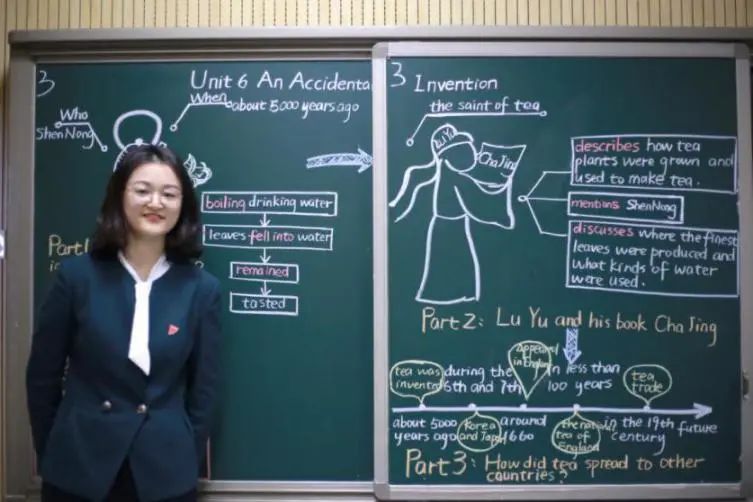 3
Unit 6 An Accidental
When
about 5000 years ago
Who
ShenNong
boiling drinking water
leaves fell into water
remained
tasted
Part1
3
Invention
the saint of tea
Lu Yu
ChaJing
describes how tea
plants were grown and
used to make tea.
mentions ShenNong
discusses where the finest
leaves were produced and
what kinds of water
were used.
Part2: Lu Yu and his book ChaJing
tea was
invented
during the
6th and 7th
appeared
in England
in less than
100 years
tea
trade
about 5000
years ago
Korea
and Japan
around
1660
tea of
England
in the 19th
century
future
Part3: How did tea spread to other
countries?